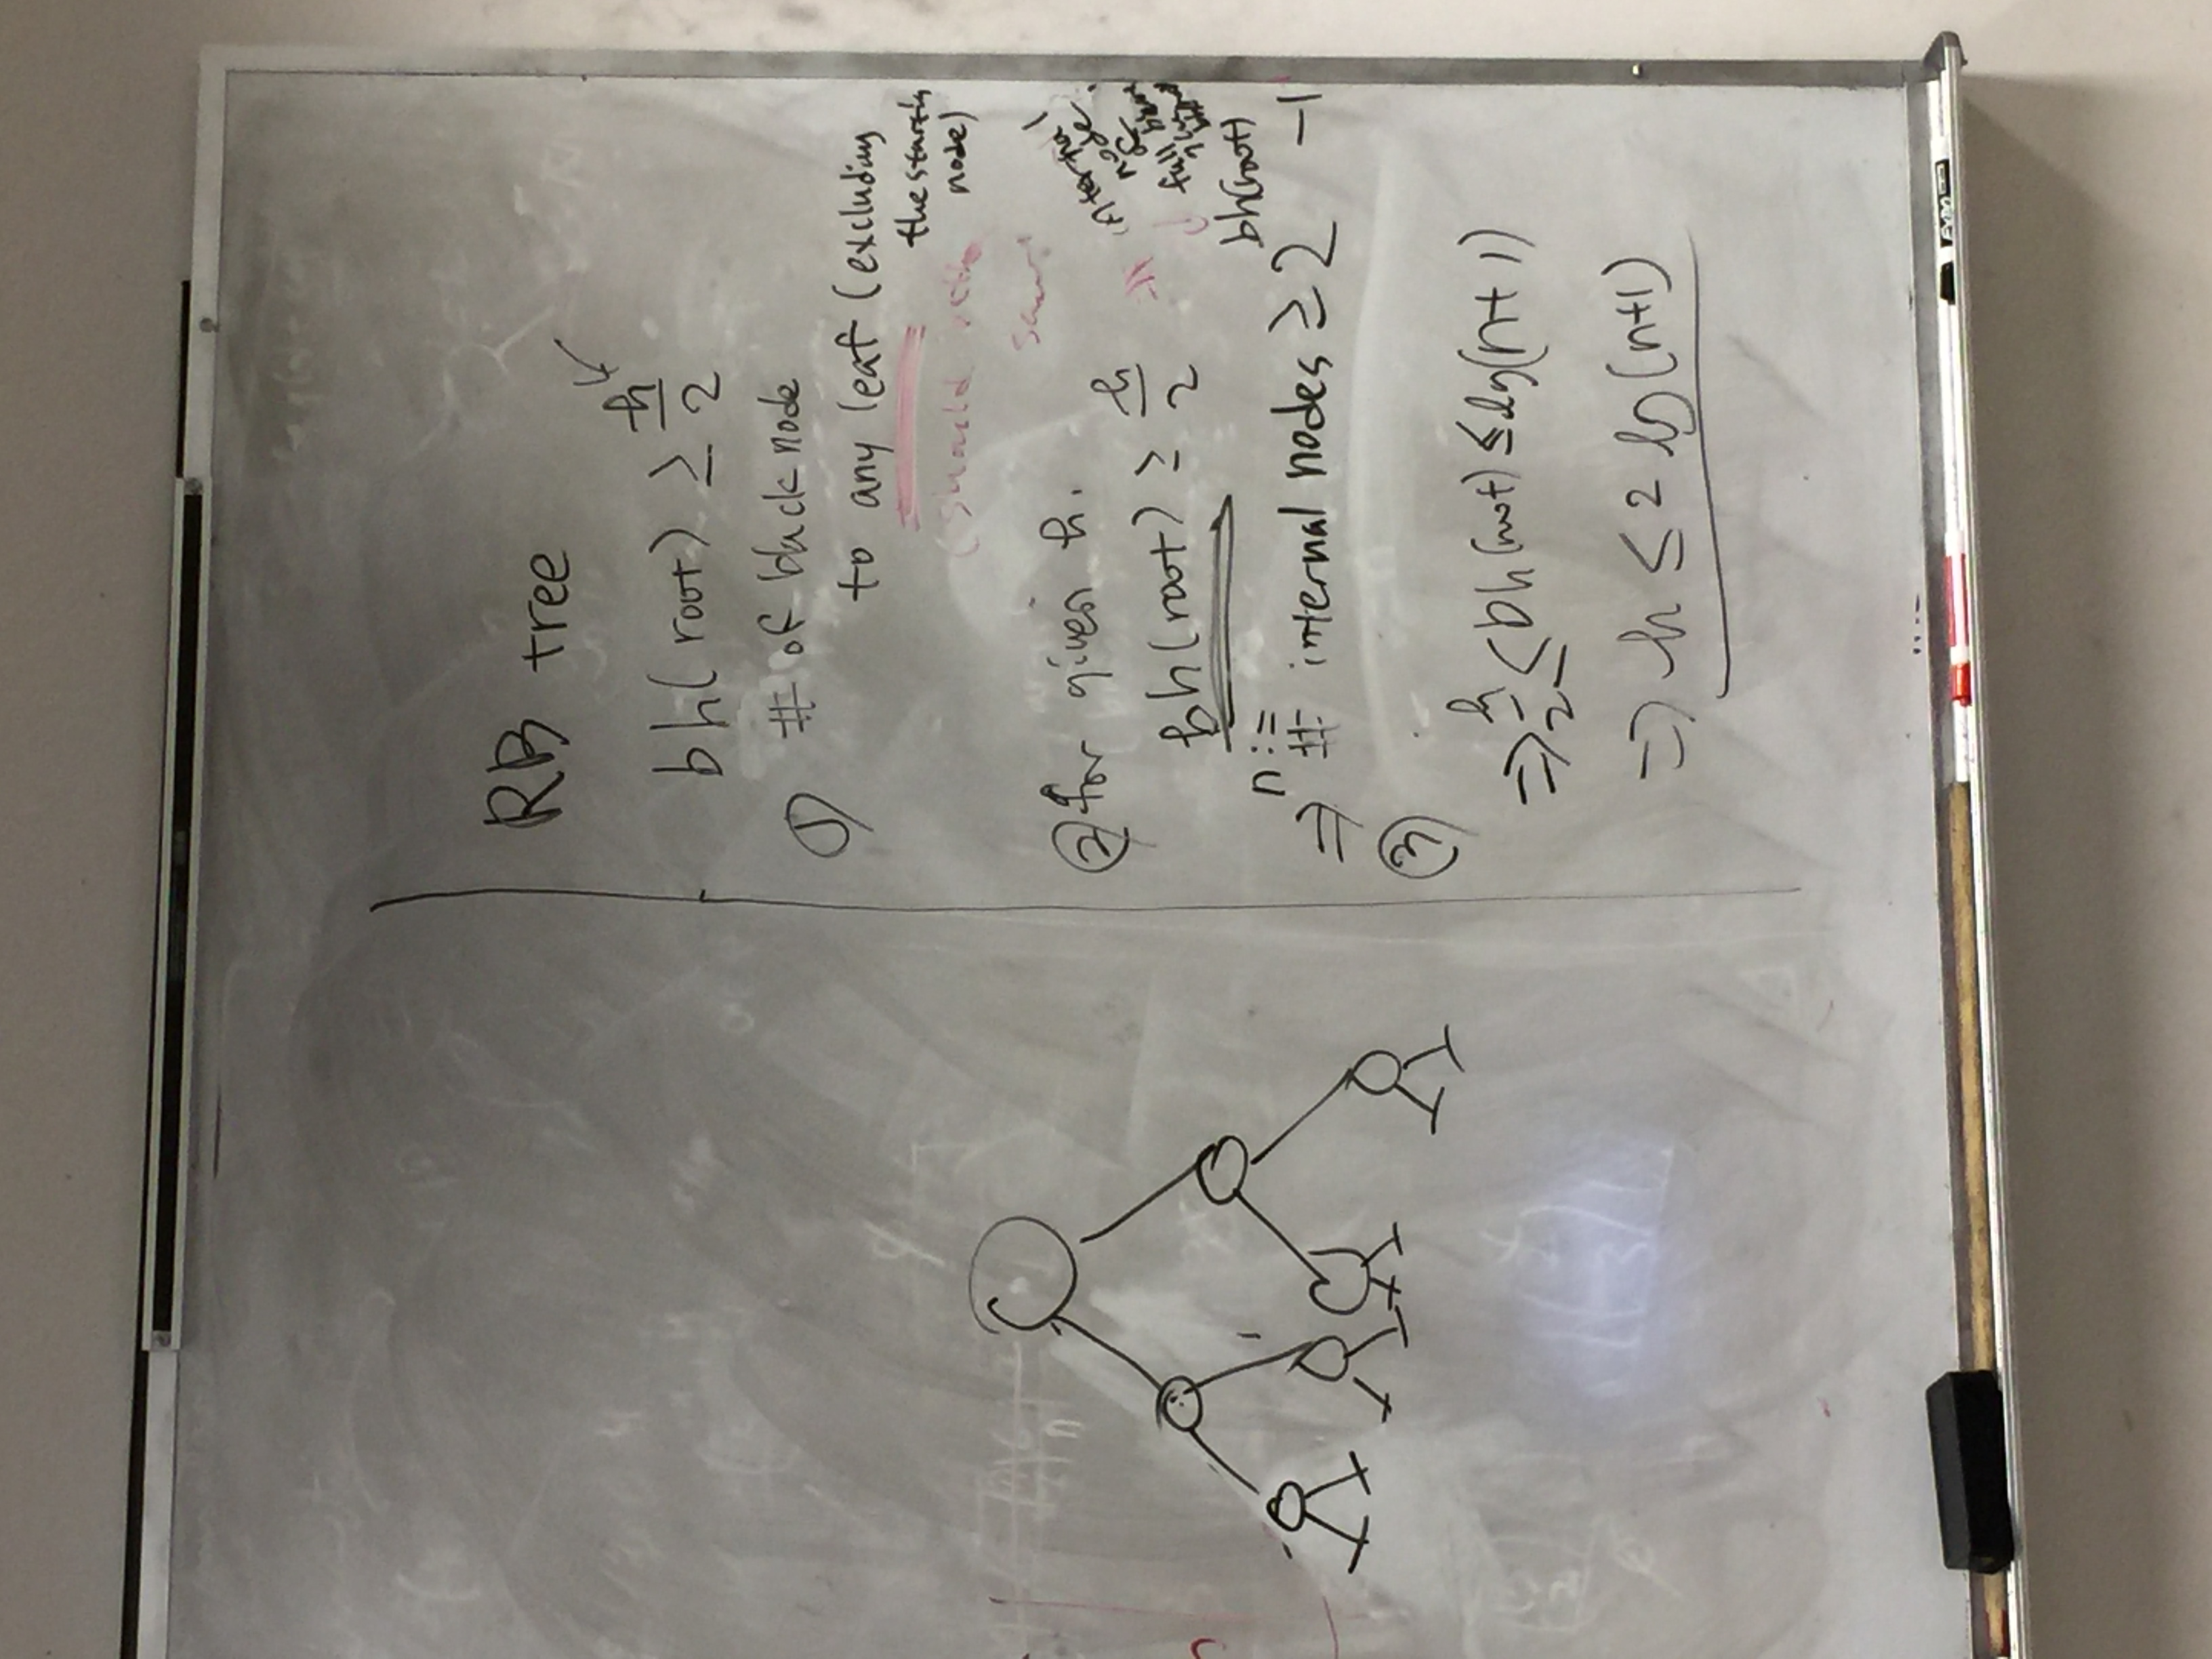 RB tree
bh(root) ≥ h/2
① # of black node
to any leaf (excluding
the starting
node)
(should
same
② for given h.
internal
node
of
full
bh(root) ≥ h/2
n :=
⇒ # internal nodes ≥ 2^bh(root) -1
③
⇒ h/2 ≤ bh(root) ≤ lg(n+1)
⇒ h ≤ 2 lg(n+1)